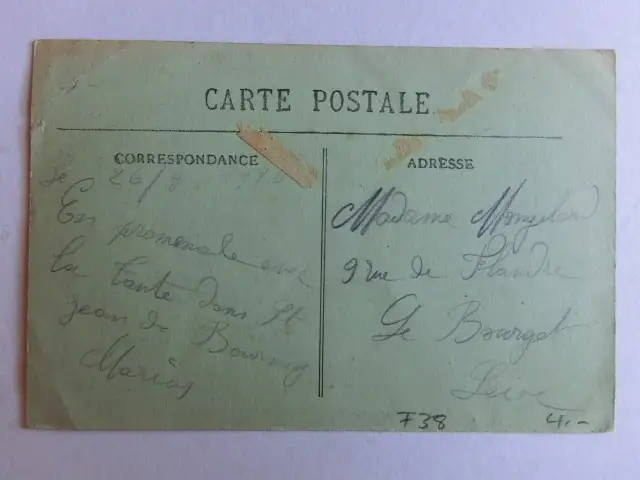 CARTE POSTALE
CORRESPONDANCE
Le 26/8
En promenade avec
la tante dans St
Jean de Bournay
Marius
ADRESSE
Madame
9 rue de Flandre
Le Bourget
Seine
F38
4.-